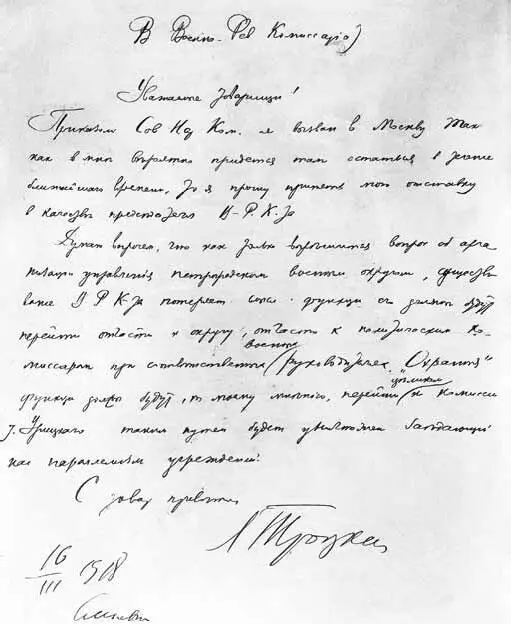 В Военно-Рев Комиссариа)
Уважаемые товарищи!
Приказом Сов Нар Ком. я вызван в Москву Так
как в мне вероятно придется там остаться в течение
ближайшего времени, то я прошу принять мою отставку
в качестве председателя В-Р.К-та
Думаю впрочем, что как только вопрос об орга
низации управления петроградским военным округом, существо
вание В Р К-та потеряет смысл. функции его должны будут
перейти отчасти к округу, отчасти к политическим ко-
военных
миссарам при ответственных руководителях, "Охранные"
целиком
функции должны будут, по моему мнению, перейти к комиссии
т. Урицкого таким путем будет уничтожен
как параллелизм учреждений.
С товар приветом
Л Троцкий
16/III 1918